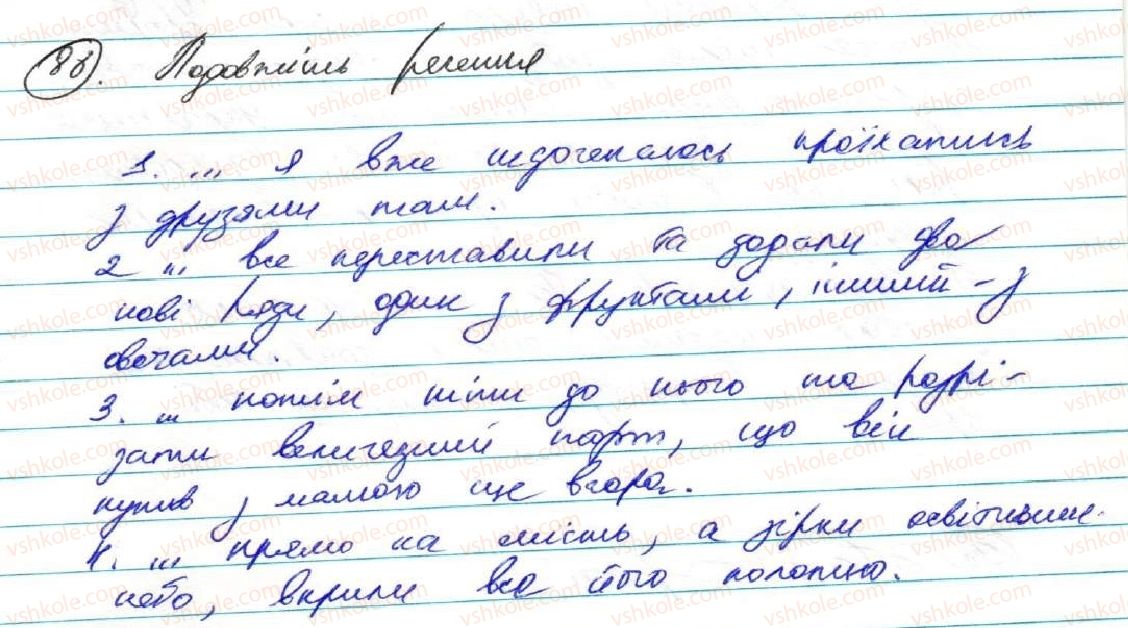 88. Подовжіть речення
1. ... я вже недочекалась проїхатись
з друзями там.
2 ... все переставили та додали два
нові ряди, один з фруктами, інший - з
овочами.
3. ... потім піти до нього та розрі-
зати величезний торт, що він
купив з мамою ще вчора.
4. ... прямо на мість, а зірки освітивши
небо, вкрили все його полотно.
vshkole.com